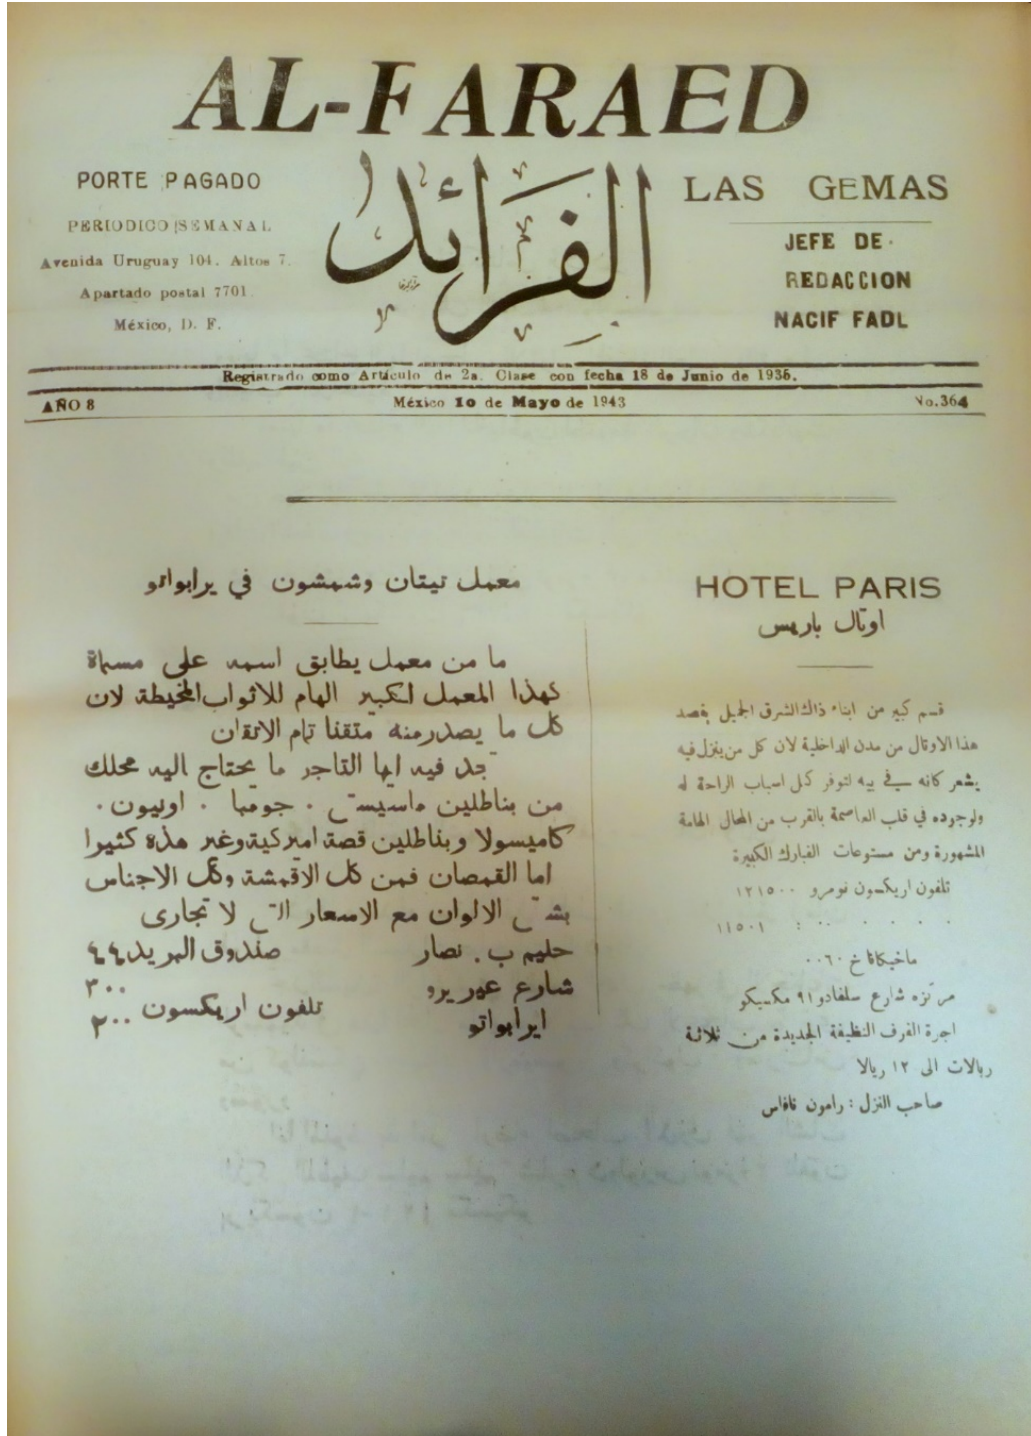 AL-FARAED
الفرائد
PORTE PAGADO
PERIODICO SEMANAL
Avenida Uruguay 104. Altos 7.
Apartado postal 7701
México, D. F.
LAS GEMAS
JEFE DE
REDACCION
NACIF FADL
Registrado como Artículo de 2a. Clase con fecha 18 de Junio de 1936.
AÑO 8
México 10 de Mayo de 1943
No.364
HOTEL PARIS
اوتال باريس
قسم كبير من ابناء ذاك الشرق الجميل يقصد
هذا الاوتال من مدن الداخلية لان كل من ينزل فيه
يشعر كانه في بيه لتوفر كل اسباب الراحة له
ولوجوده في قلب العاصمة بالقرب من المحال الهامة
المشهورة ومن مستوعات الفبارك الكبيرة
تلفون اريكسون نومرو ١٢١٥٠٠
١١٥٠١
شارع سلفادو ٩١ مكسيكو
اجرة الغرف النظيفة الجديدة من ثلاثة
ريالات الى ١٢ ريالا
صاحب النزل : رامون
معمل تيتان وشمشون في يرابواتو
ما من معمل يطابق اسمه على مسماة
كهذا المعمل الكبير الهام للاثواب المخيطة لان
كل ما يصدر منه متقنا تام الاتقان
تجد فيه ايها التاجر ما يحتاج اليه محلك
من بناطلين . جومبا . اوليون.
كاميسولا وبناطلين قصة اميركية وغير هذه كثيرا
اما القمصان فمن كل الاقمشة وكل الاجناس
بشتى الالوان مع الاسعار التي لا تجارى
حليم ب. نصار صندوق البريد ٤٤
شارع
تلفون اريكسون ٣٠٠
٢٠٠
ايرابواتو